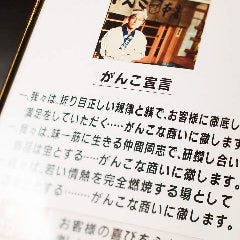 がんこ宣言
一、我々は、折り目正しい規律と躾で、お客様に徹底し
満足をしていただく……がんこな商いに徹します
我々は、味一筋に生きる仲間同志で、研鑽し合い
宝とする……がんこな商いに徹します
若い情熱を完全燃焼する場として
とする………がんこな商いに徹します。
お客様の喜びを